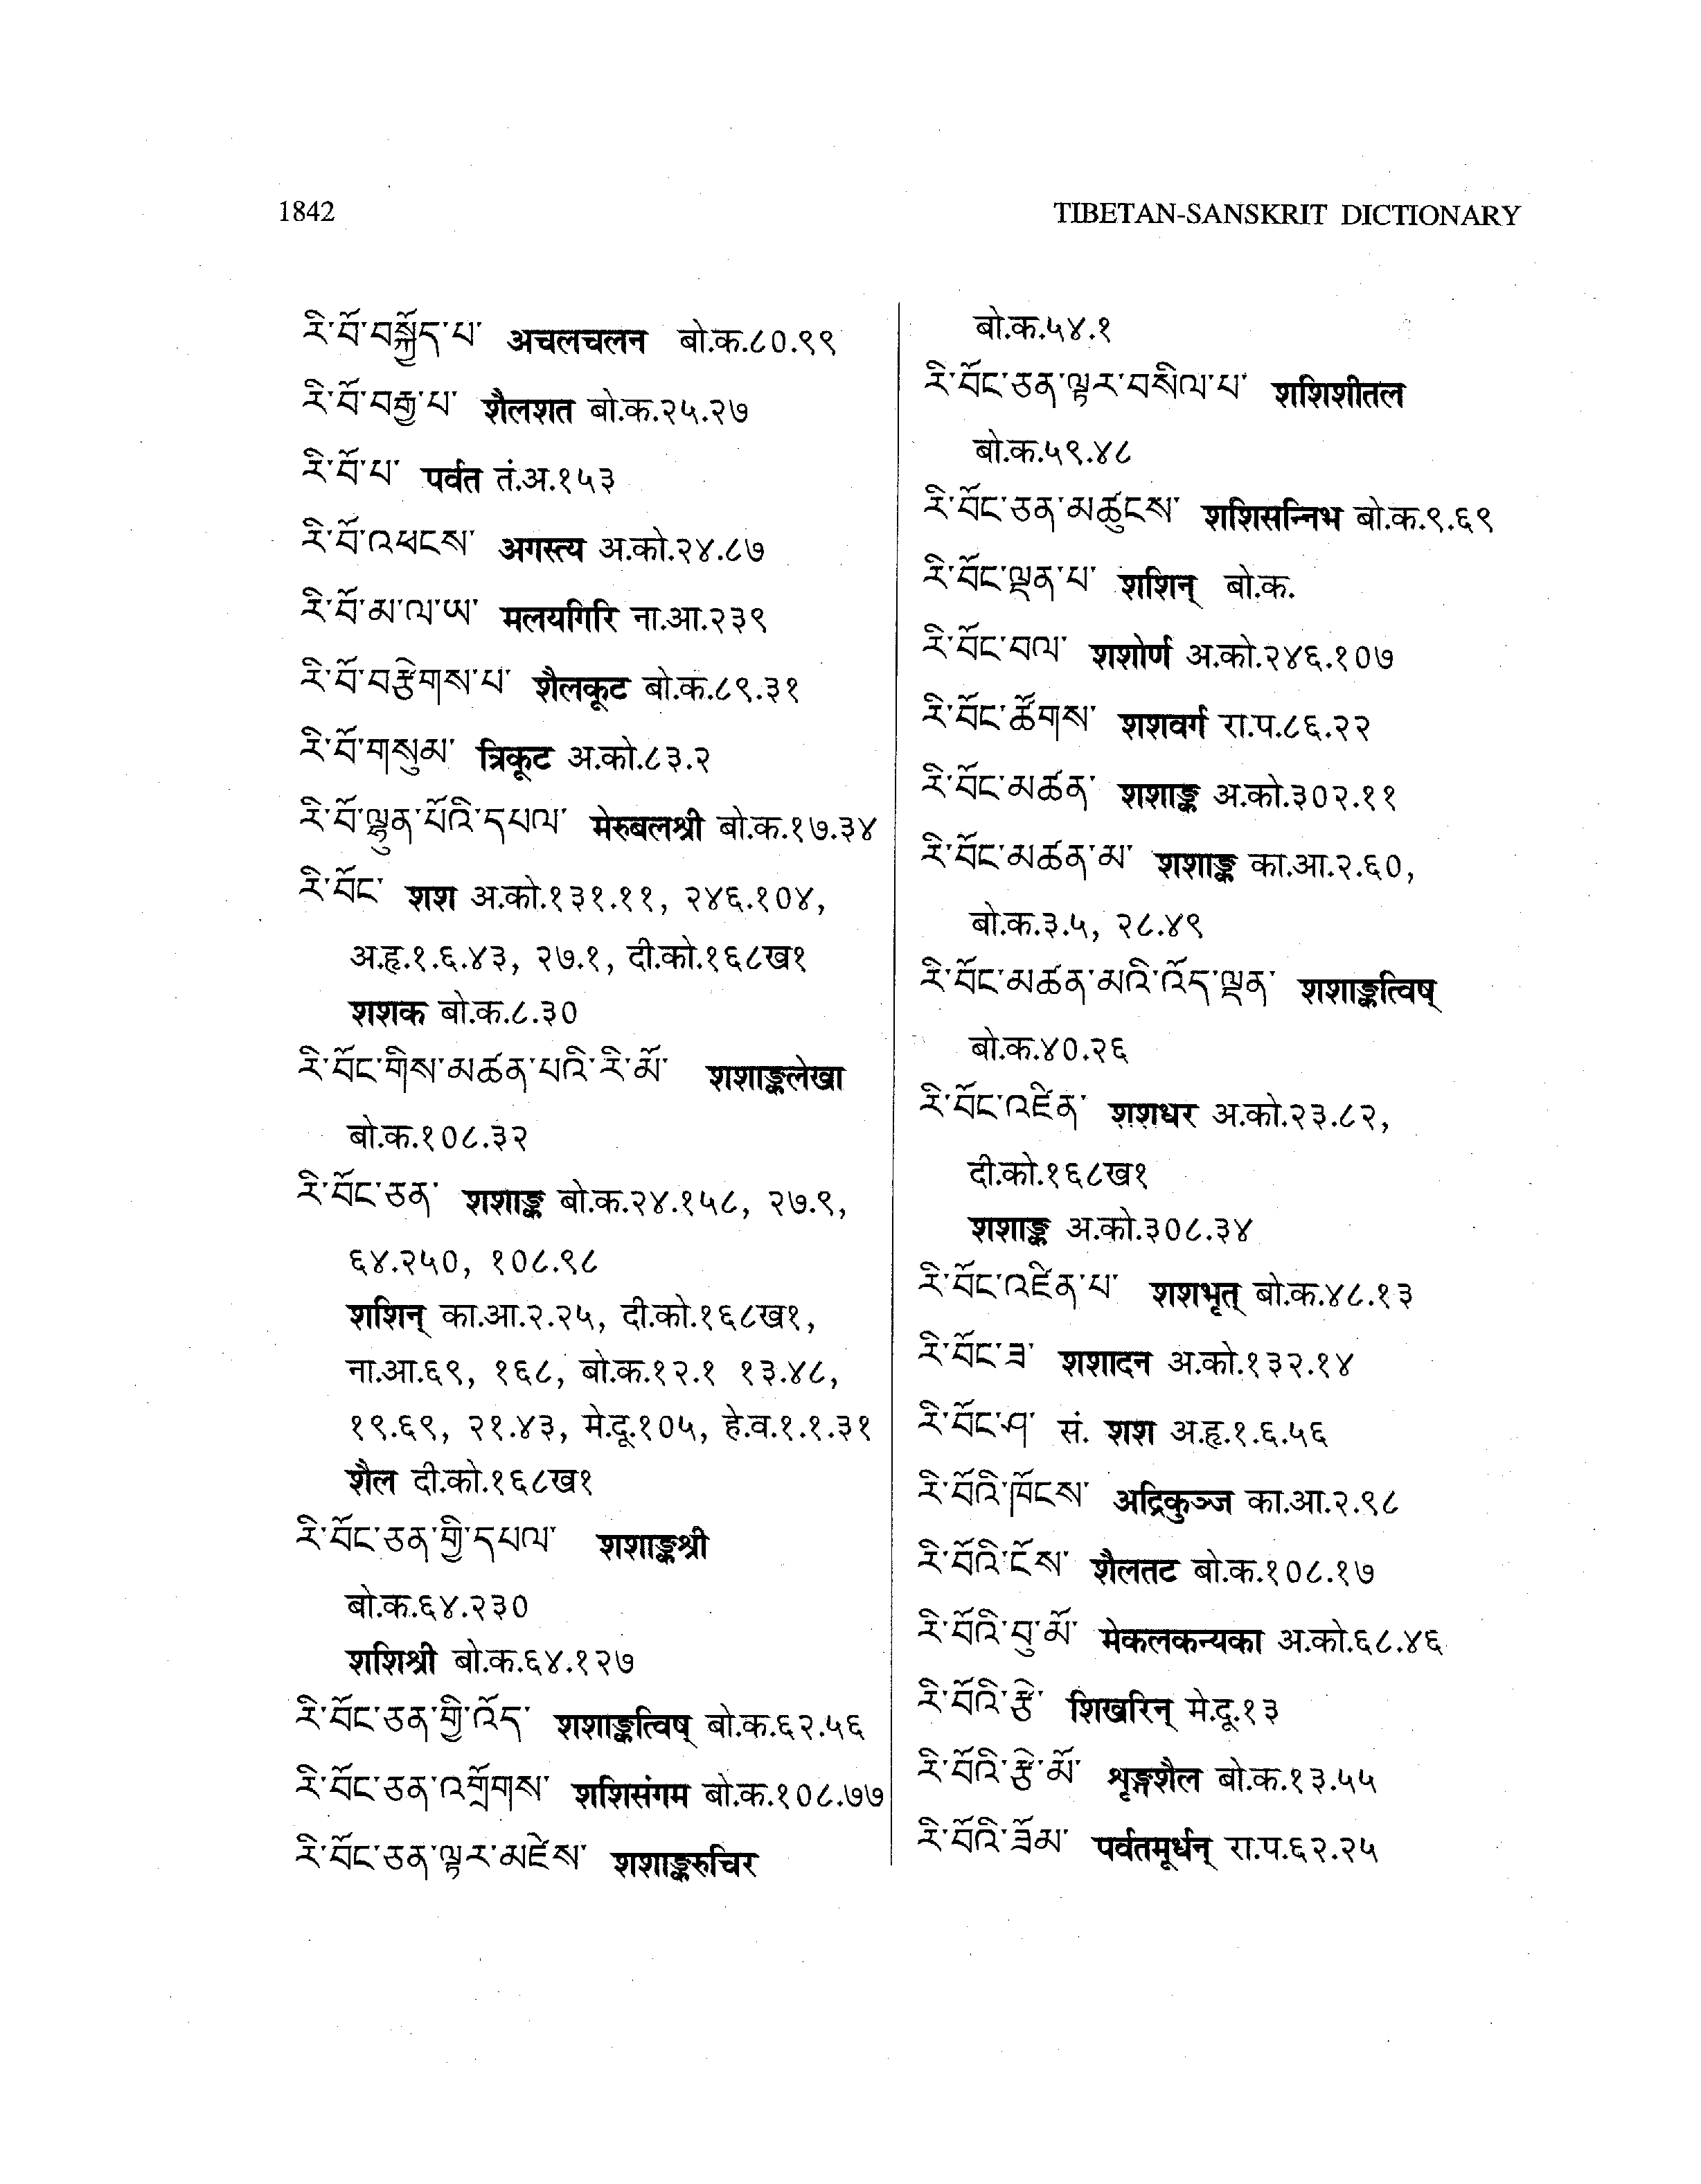 1842
TIBETAN-SANSKRIT DICTIONARY
རི་བོ་བསྐྱོད་པ་ अचलचलन बो.क.८०.९९
རི་བོ་བརྒྱ་པ་ शैलशत बो.क.२५.२७
རི་བོ་པ་ पर्वत तं.अ.१५३
རི་བོ་འཕངས་ अगस्त्य अ.को.२४.८७
རི་བོ་མ་ལ་ཡ་ मलयगिरि ना.आ.२३९
རི་བོ་བརྩེགས་པ་ शैलकूट बो.क.८९.३१
རི་བོ་གསུམ་ त्रिकूट अ.को.८३.२
རི་བོ་ལྷུན་པོའི་དཔལ་ मेरुबलश्री बो.क.१७.३४
རི་བོང་ शश अ.को.१३१.११, २४६.१०४,
अ.हृ.१.६.४३, २७.१, दी.को.१६८ख१
शशक बो.क.८.३०
རི་བོང་གིས་མཚན་པའི་རི་མོ་ शशाङ्कलेखा
बो.क.१०८.३२
རི་བོང་ཅན་ शशाङ्क बो.क.२४.१५८, २७.९,
६४.२५०, १०८.९८
शशिन् का.आ.२.२५, दी.को.१६८ख१,
ना.आ.६९, १६८, बो.क.१२.१ १३.४८,
१९.६९, २१.४३, मे.दू.१०५, हे.व.१.१.३१
शैल दी.को.१६८ख१
རི་བོང་ཅན་གྱི་དཔལ་ शशाङ्कश्री
बो.क.६४.२३०
शशिश्री बो.क.६४.१२७
རི་བོང་ཅན་གྱི་འོད་ शशाङ्कत्विष् बो.क.६२.५६
རི་བོང་ཅན་འགྲོགས་ शशिसंगम बो.क.१०८.७७
རི་བོང་ཅན་ལྟར་མཛེས་ शशाङ्करुचिर
बो.क.५४.१
རི་བོང་ཅན་ལྟར་བསིལ་པ་ शशिशीतल
बो.क.५९.४८
རི་བོང་ཅན་མཚུངས་ शशिसन्निभ बो.क.९.६९
རི་བོང་ལྡན་པ་ शशिन् बो.क.
རི་བོང་བལ་ शशोर्ण अ.को.२४६.१०७
རི་བོང་ཚོགས་ शशवर्ग रा.प.८६.२२
རི་བོང་མཚན་ शशाङ्क अ.को.३०२.११
རི་བོང་མཚན་མ་ शशाङ्क का.आ.२.६०,
बो.क.३.५, २८.४९
རི་བོང་མཚན་མའི་འོད་ལྡན་ शशाङ्कत्विष्
बो.क.४०.२६
རི་བོང་འཛིན་ शशधर अ.को.२३.८२,
दी.को.१६८ख१
शशाङ्क अ.को.३०८.३४
རི་བོང་འཛིན་པ་ शशभृत् बो.क.४८.१३
རི་བོང་ཟ་ शशादन अ.को.१३२.१४
རི་བོང་ཤ་ सं. शश अ.हृ.१.६.५६
རི་བོའི་ཁོངས་ अद्रिकुञ्ज का.आ.२.९८
རི་བོའི་ངོས་ शैलतट बो.क.१०८.१७
རི་བོའི་བུ་མོ་ मेकलकन्यका अ.को.६८.४६
རི་བོའི་རྩེ་ शिखरिन् मे.दू.१३
རི་བོའི་རྩེ་མོ་ शृङ्गशैल बो.क.१३.५५
རི་བོའི་ཟོམ་ पर्वतमूर्धन् रा.प.६२.२५